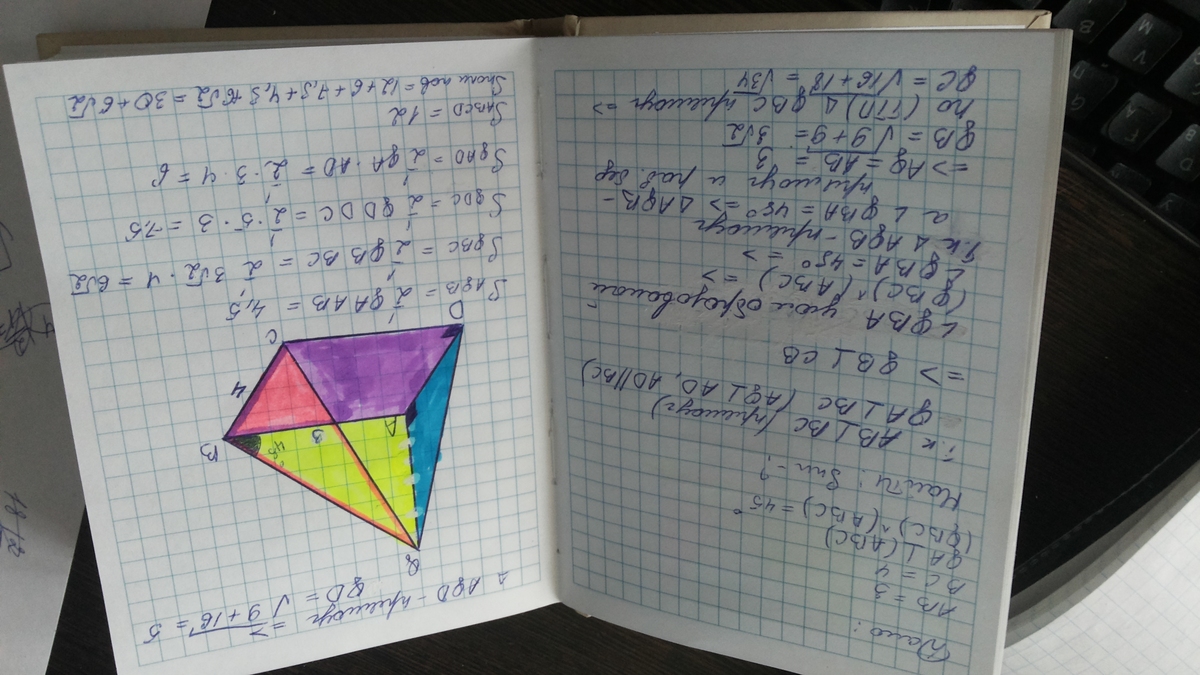 Дано:
AB = 3
BC = 4
QA ⊥ (ABC)
(QBC)^(ABC) = 45°
Найти: Sпп - ?
т.к AB ⊥ BC (прямоуг)
QA ⊥ BC (AQ ⊥ AD, AD || BC)
=> QB ⊥ CB
∠QBA угол образованый
(QBC)^(ABC) =>
∠QBA = 45° =>
т.к △AQB - прямоуг
а ∠QBA = 45° => △AQB -
прямоуг и рав. бер
=> AQ = AB = 3
QB = √9+9 = 3√2
по (ТТП) △QBC прямоуг =>
QC = √16+18 = √34
△ AQD - прямоуг =>
QD = √9+16 = 5
Q
45°
B
3
A
4
C
D
SAQB = 1/2 QA AB = 4,5
SQBC = 1/2 QB BC = 1/2 3√2 · 4 = 6√2
SQDC = 1/2 QD DC = 1/2 · 5 · 3 = 7,5
SQAD = 1/2 QA · AD = 1/2 · 3 · 4 = 6
SABCD = 12
Sполн пов = 12+6+7,5+4,5+6√2 = 30+6√2